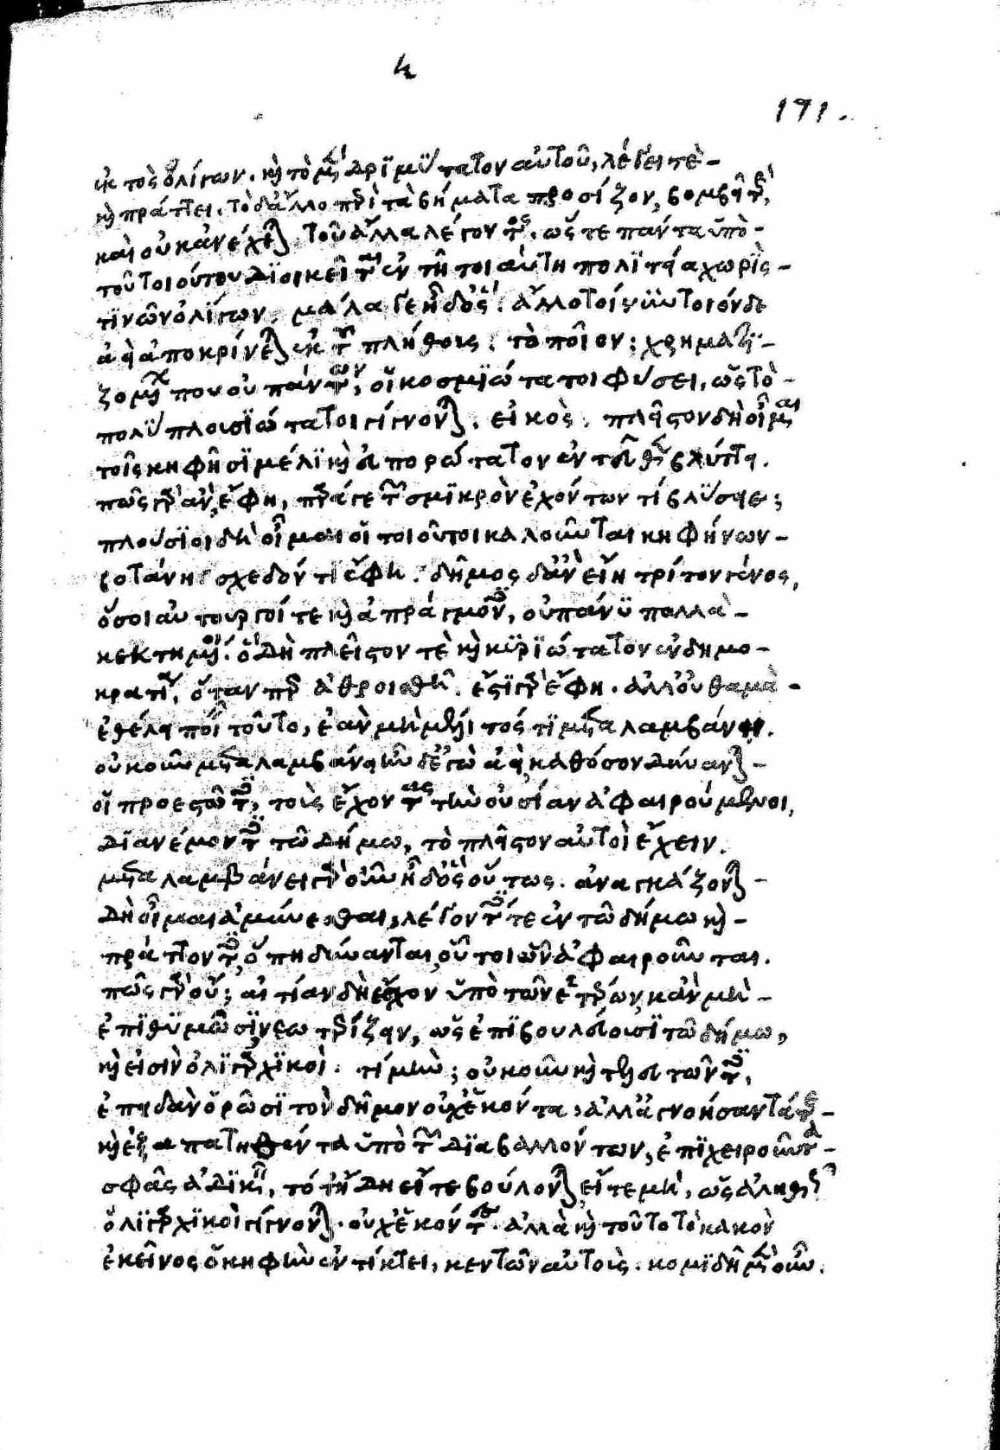 191.
ἐκτὸς ὀλίγων. καὶ τὸ μὲν δριμύτατον αὐτοῦ, λέγει τὲ
καὶ πράττει. τὸ δ' ἄλλο περὶ τὰ βήματα προσίζον, βομβεῖ τε,
καὶ οὐκ ἀνέχεται τοῦ ἄλλα λέγοντος. ὥστε πάντα ὑπὸ
τοῦ τοιούτου διοικεῖται ἐν τῆ τοιαύτη πολιτεία χωρὶς
τινῶν ὀλίγων. μάλα γε ἦ δ' ὅς. ἄλλο τοίνυν τοιόνδε
ἀεὶ ἀποκρίνεται ἐκ τοῦ πλήθους. τὸ ποῖον; χρηματι-
ζομένων που οὐ πάντων, οἱ κοσμιώτατοι φύσει, ὡς τὸ
πολὺ πλουσιώτατοι γίγνονται. εἰκός. πλεῖστον δὴ οἶμαι
τοῖς κηφῆσι μέλι καὶ εὐπορώτατον ἐντεῦθεν βλύττει.
πῶς γὰρ ἂν, ἔφη, παρά γε τῶν σμικρὸν ἐχόντων τὶς βλύσειε;
πλούσιοι δὴ οἶμαι οἱ τοιοῦτοι καλοῦνται κηφήνων
βοτάνη. σχεδόν τι ἔφη. δῆμος δ' ἂν εἴη τρίτον γένος,
ὅσοι αὐτουργοί τε καὶ ἀπράγμονες, οὐ πάνυ πολλὰ
κεκτημένοι. ὃ δὴ πλεῖστον τὲ καὶ κυριώτατον ἐν δημο-
κρατία, ὅταν περ ἀθροισθῆ. ἔστι γὰρ ἔφη. ἀλλ' οὐ θαμὰ
ἐθέλει ποιεῖν τοῦτο, ἐὰν μὴ μέλιτός τι μεταλαμβάνη.
οὐκοῦν μεταλαμβάνει ἦν δ' ἐγὼ ἀεὶ, καθόσον δύνανται
οἱ προεστῶτες, τοὺς ἔχοντας τὴν οὐσίαν ἀφαιρούμενοι,
διανέμοντες τῶ δήμω, τὸ πλεῖστον αὐτοὶ ἔχειν.
μεταλαμβάνει γὰρ οὖν ἦ δ' ὃς οὕτως. ἀναγκάζονται
δὴ οἶμαι ἀμύνεσθαι, λέγοντές τε ἐν τῶ δήμω καὶ
πράττοντες ὅπη δύνανται, οὗτοι ὧν ἀφαιροῦνται.
πῶς γὰρ οὔ; αἰτίαν δὴ ἔσχον ὑπὸ τῶν ἑτέρων, κἂν μὴ
ἐπιθυμῶσι νεωτερίζειν, ὡς ἐπιβουλεύουσι τῶ δήμω,
καί εἰσιν ὀλιγαρχικοί. τί μήν; οὐκοῦν καὶ τελευτῶντες,
ἐπειδὰν ὁρῶσι τὸν δῆμον οὐχ ἑκόντα, ἀλλ' ἀγνοήσαντά τε
καὶ ἐξαπατηθέντα ὑπὸ τῶν διαβαλλόντων, ἐπιχειροῦντα
σφᾶς ἀδικεῖν, τότ' ἤδη εἴτε βούλονται, εἴτε μή, ὡς ἀληθῶς
ὀλιγαρχικοὶ γίγνονται. οὐχ ἑκόντες. ἀλλὰ καὶ τοῦτο τὸ κακὸν
ἐκεῖνος ὁ κηφὴν ἐντίκτει, κεντῶν αὐτούς. κομιδῆ μὲν οὖν.